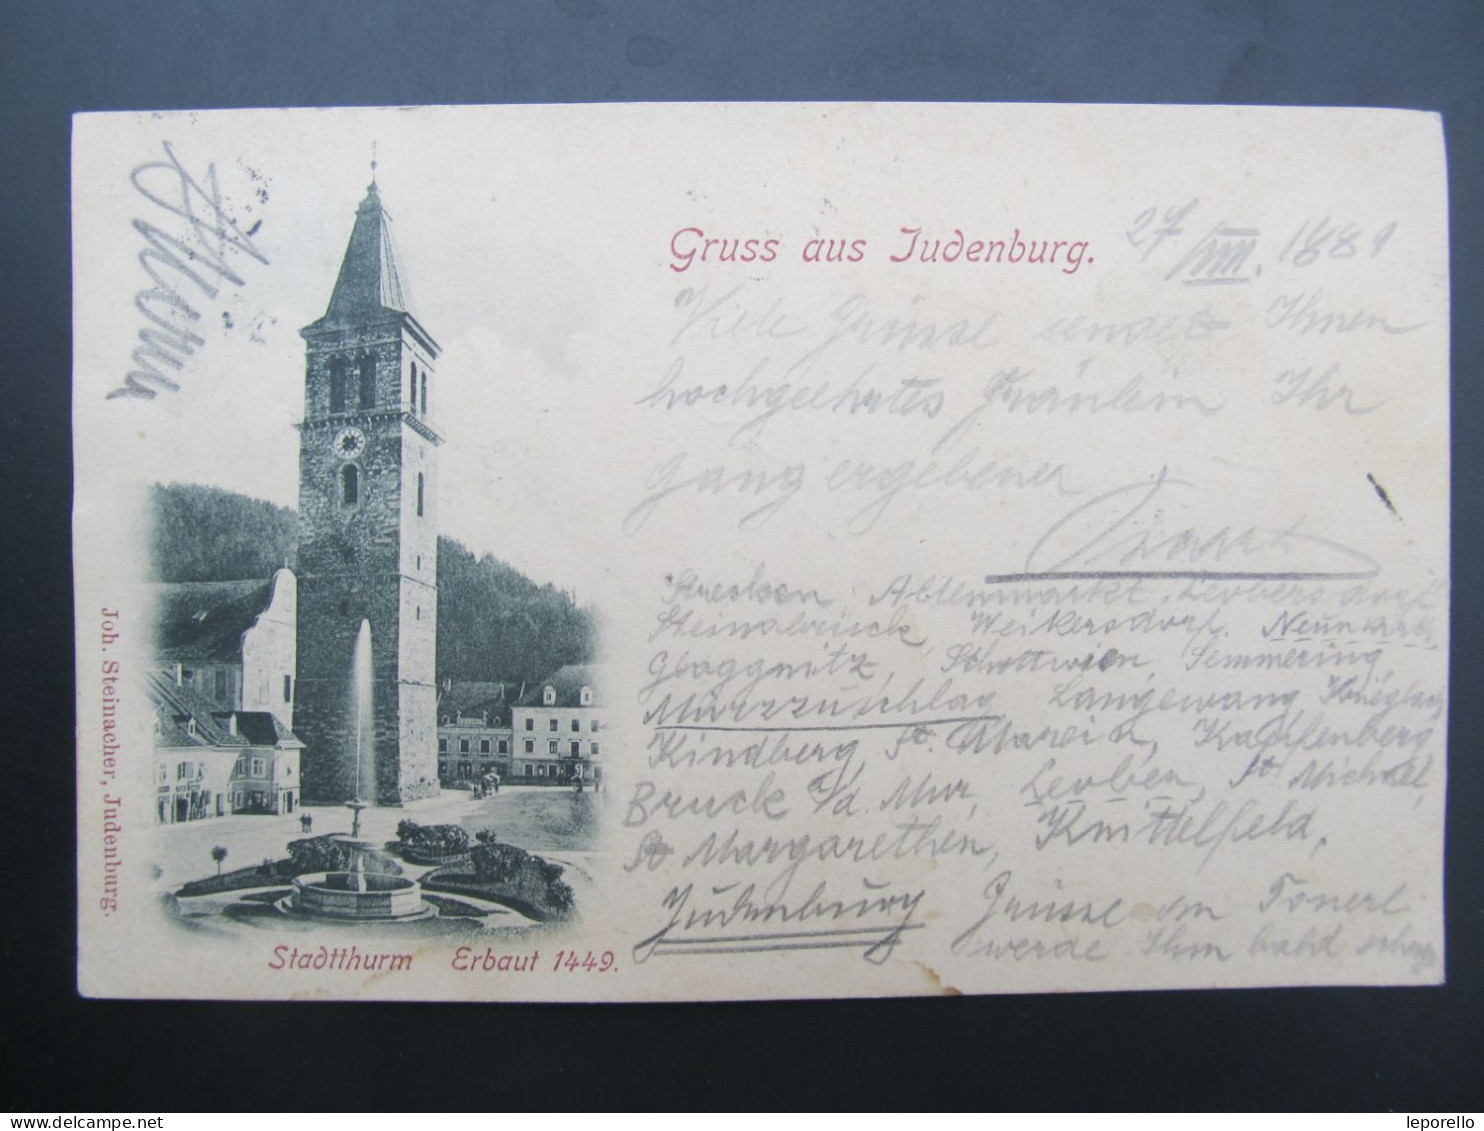 Gruss aus Judenburg.
27/VIII. 1881
Viele Grüsse sendet Ihnen
hochgeehrtes Fräulein Ihr
ganz ergebener
Strecken Altenmarkt, Leobersdorf
Steinabrück, Weikersdorf, Neunkirch,
Gloggnitz, Schottwien, Semmering,
Mürzzuschlag Langewang, Krieglach
Kindberg, St. Marein, Kapfenberg
Bruck a/d. Mur, Leoben, St Michael,
St Margarethen, Knittelfeld,
Judenburg Grüsse an Tonerl
werde Ihm bald
Joh. Steinacher, Judenburg.
Stadtthurm Erbaut 1449.
www.delcampe.net
leporello